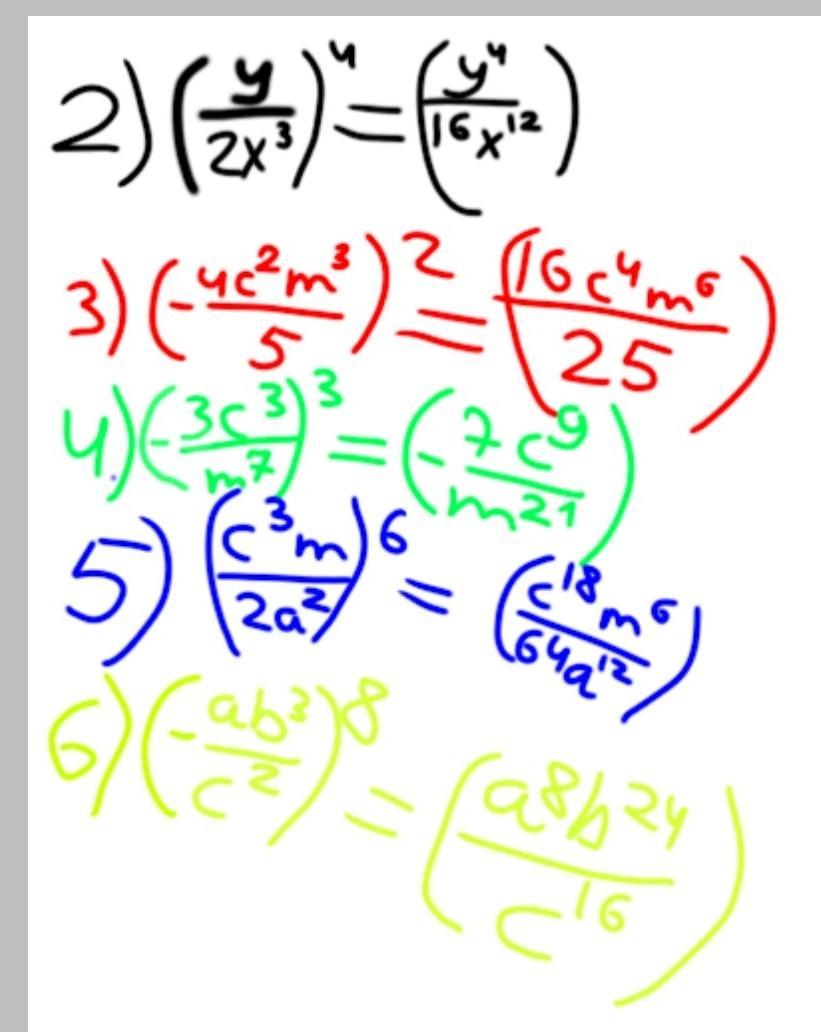 2) (y/2x³)⁴ = (y⁴/16x¹²)
3) (-4c²m³/5)² = (16c⁴m⁶/25)
4.) (-3c³/m⁷)³ = (-7c⁹/m²¹)
5) (c³m/2a²)⁶ = (c¹⁸m⁶/64a¹²)
6) (-ab³/c²)⁸ = (a⁸b²⁴/c¹⁶)